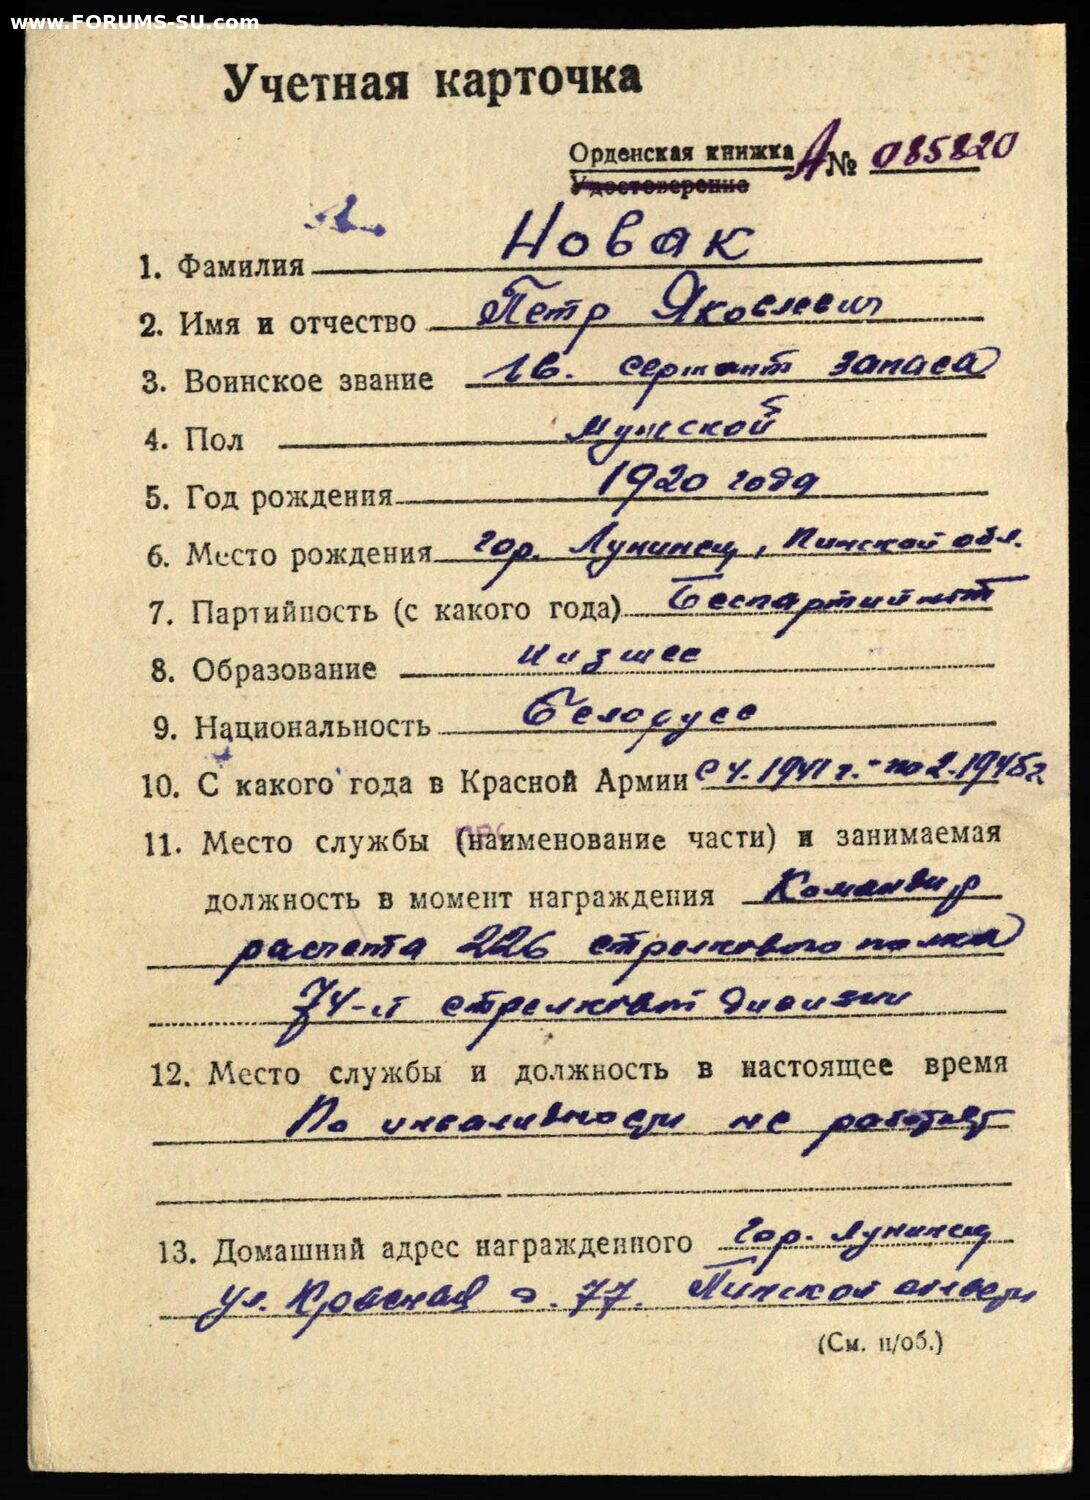 www.FORUMS-SU.com
Учетная карточка
Орденская книжка А № 085820
Удостоверение
Новак
1. Фамилия
2. Имя и отчество Петр Яковлевич
3. Воинское звание гв. сержант запаса
4. Пол мужской
5. Год рождения 1920 года
6. Место рождения гор. Лунинец, Пинской обл.
7. Партийность (с какого года) Беспартийный
8. Образование низшее
9. Национальность Белорусс
10. С какого года в Красной Армии с 4.1941 г. - по 2.1945 г
11. Место службы (наименование части) и занимаемая
должность в момент награждения Командир
расчета 226 стрелкового полка
74-й стрелковой дивизии
12. Место службы и должность в настоящее время
По инвалидности не работает
13. Домашний адрес награжденного гор. Лунинец
ул. Красная д. 77. Пинской области
(См. н/об.)